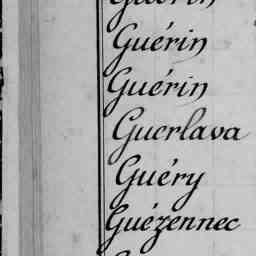 Guérin
Guérin
Guérin
Guerlava
Guéry
Guézennec